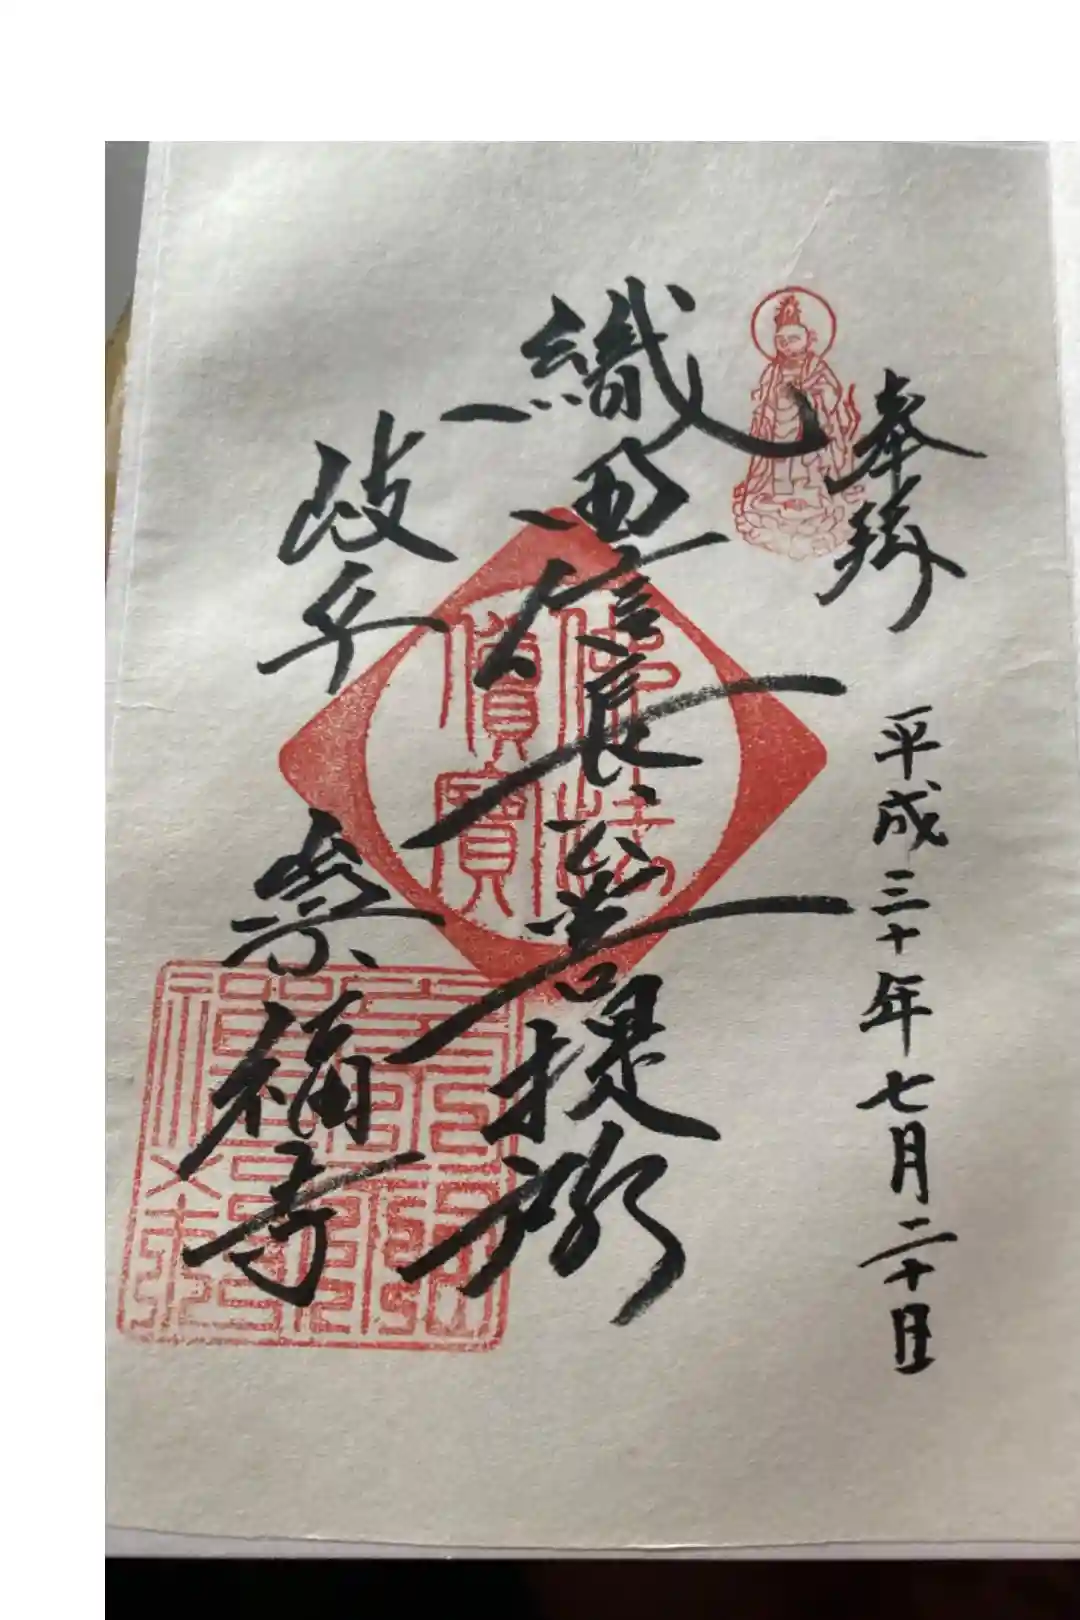 奉拝 平成三十年七月二十日
織田信長公菩提所
岐阜 崇福寺
佛法
僧寶